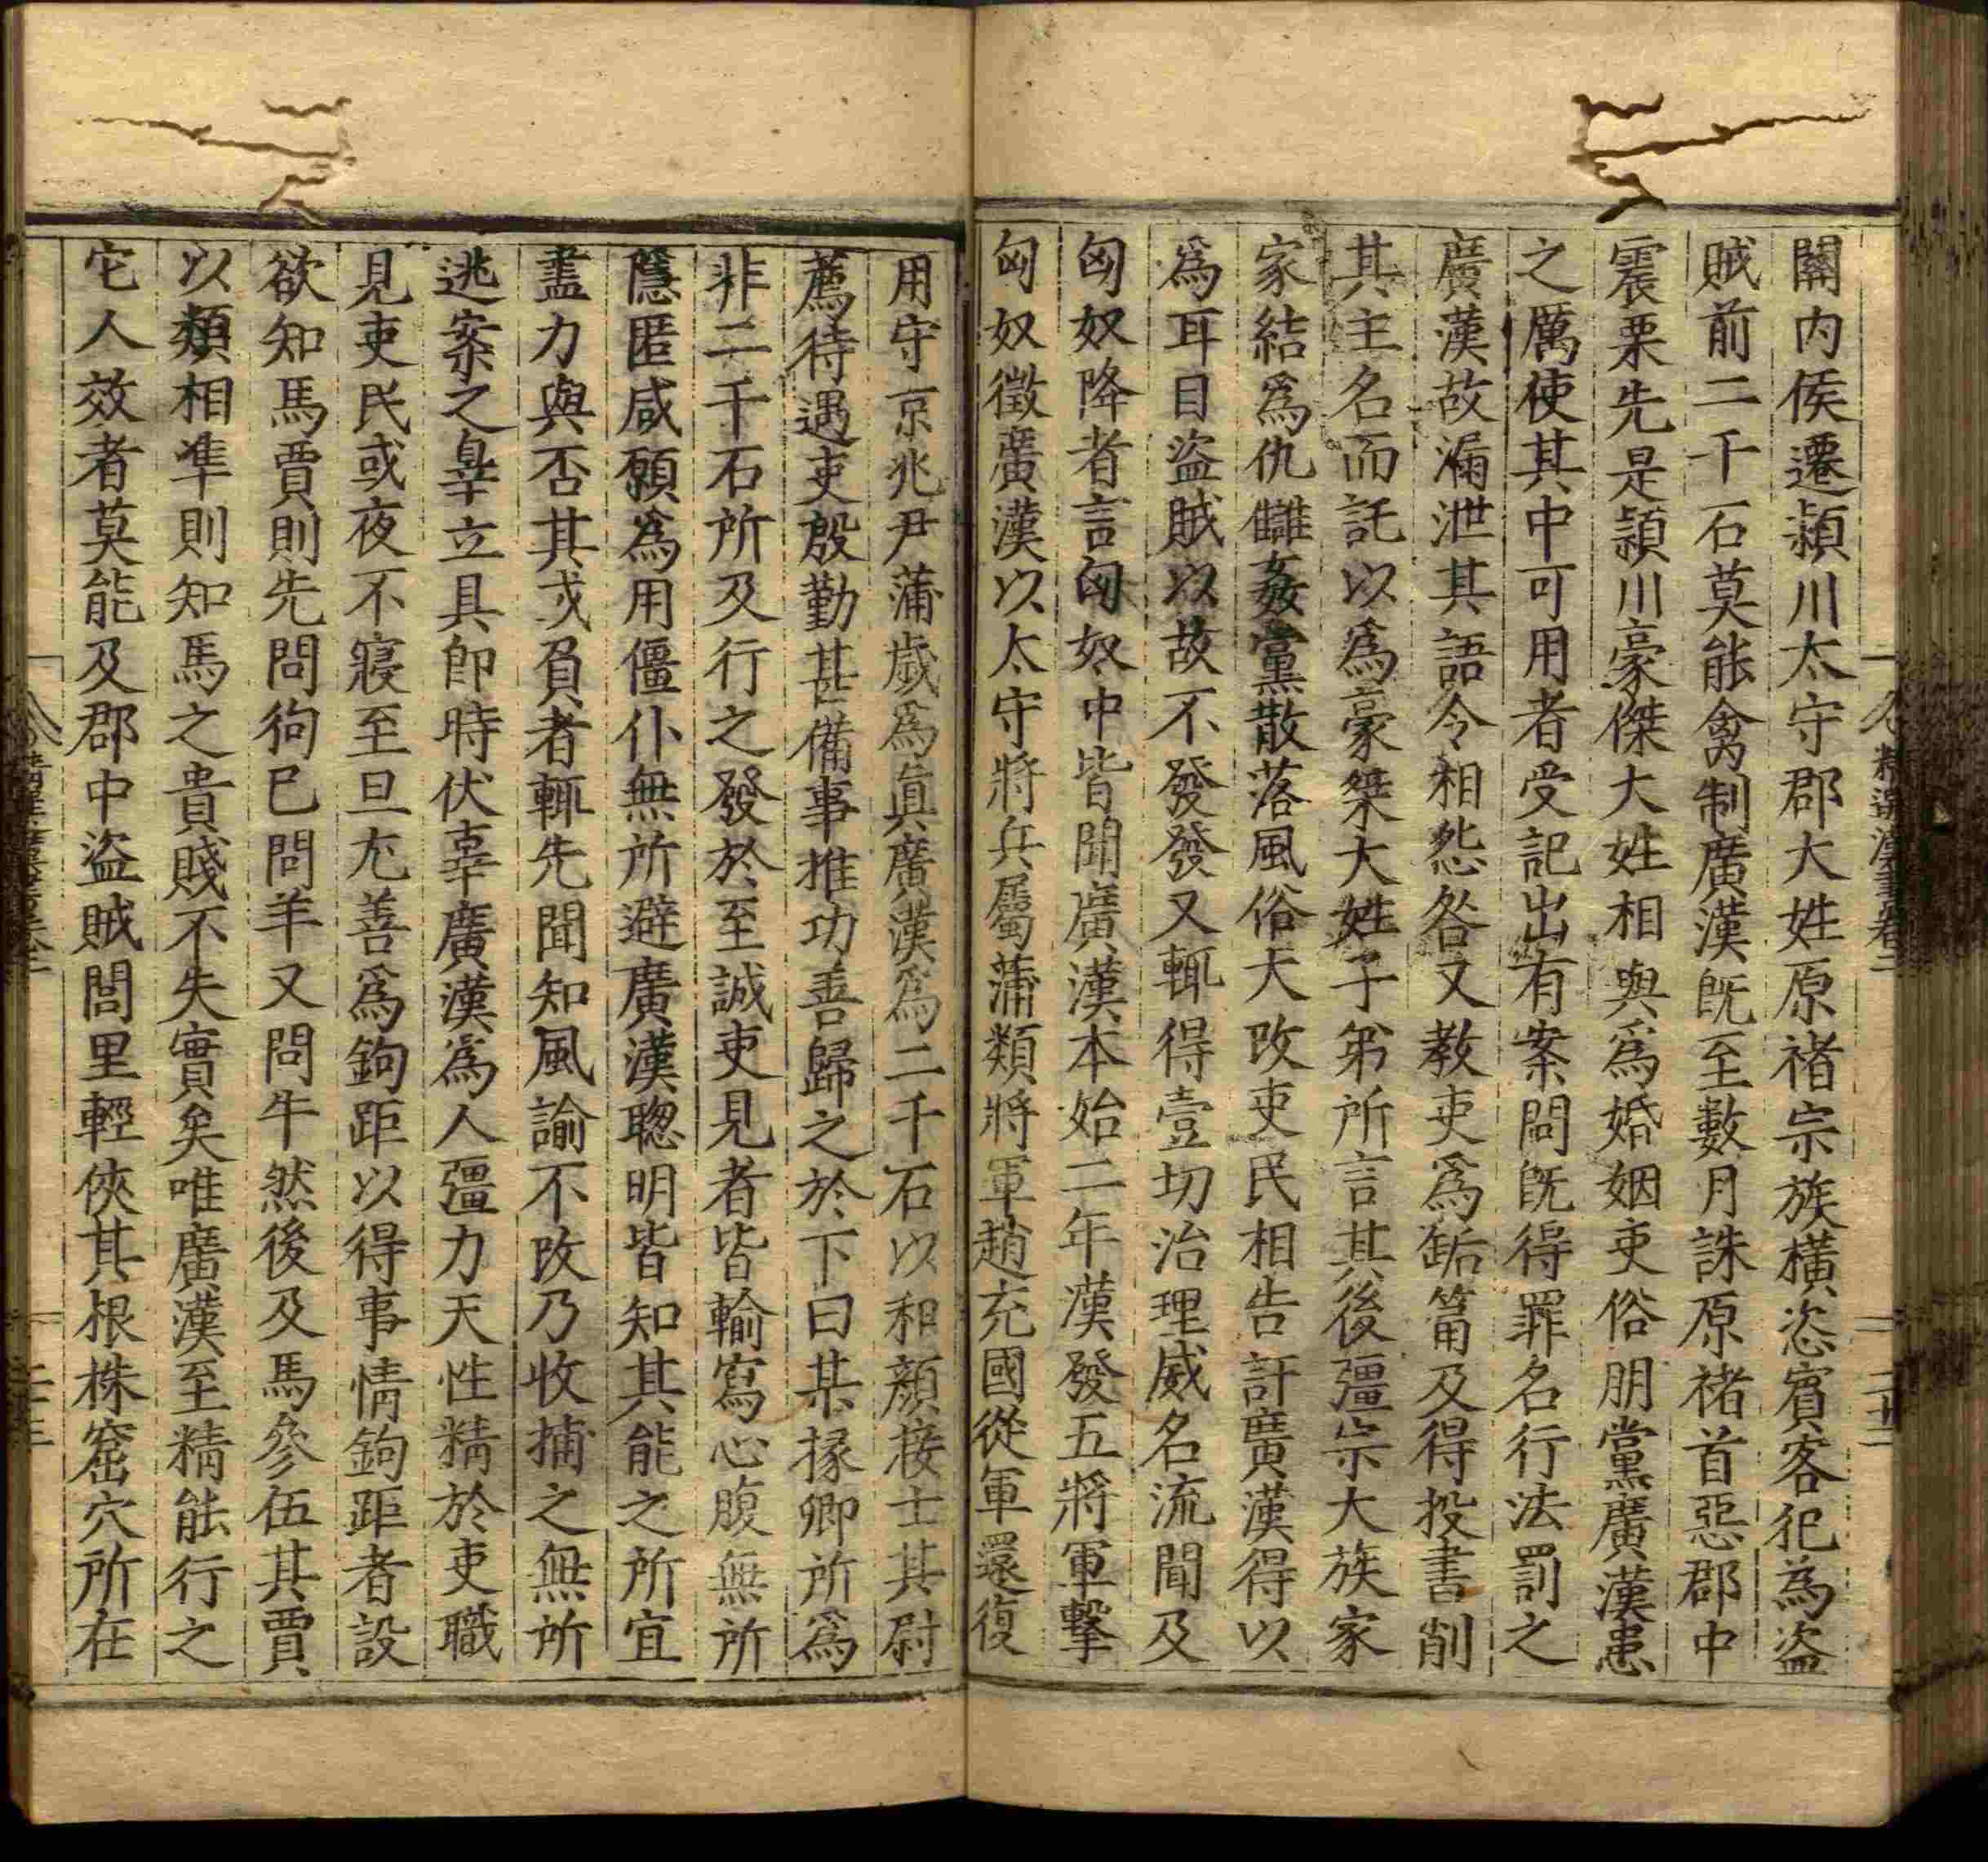 關內侯遷潁川太守郡大姓原褚宗族橫恣賔客犯為盗
賊前二千石莫能禽制廣漢旣至數月誅原褚首惡郡中
震栗先是潁川豪傑大姓相與爲婚姻吏俗朋黨廣漢患
之厲使其中可用者受記出有案問旣得罪名行法罰之
廣漢故漏泄其語令相怨咎又教吏爲缿筩及得投書削
其主名而託以爲豪桀大姓子弟所言其後彊宗大族家
家結爲仇讎姦黨散落風俗大改吏民相告訐廣漢得以
爲耳目盗賊以故不發發又輒得壹切治理威名流聞及
匈奴降者言匈奴中皆聞廣漢本始二年漢發五將軍擊
匈奴徵廣漢以太守將兵屬蒲類將軍趙充國從軍還復
用守京兆尹蒲歲爲眞廣漢爲二千石以和顔接士其尉
薦待遇吏殷勤甚備事推功善歸之於下曰某掾卿所爲
非二千石所及行之發於至誠吏見者皆輸寫心腹無所
隱匿咸願爲用僵仆無所避廣漢聰明皆知其能之所宜
盡力與否其或負者輒先聞知風諭不改乃收捕之無所
逃案之辠立具卽時伏辜廣漢爲人彊力天性精於吏職
見吏民或夜不寢至旦尤善爲鉤距以得事情鉤距者設
欲知馬賈則先問狗已問羊又問牛然後及馬參伍其賈
以類相準則知馬之貴賤不失實矣唯廣漢至精能行之
它人效者莫能及郡中盗賊閭里輕俠其根株窟穴所在